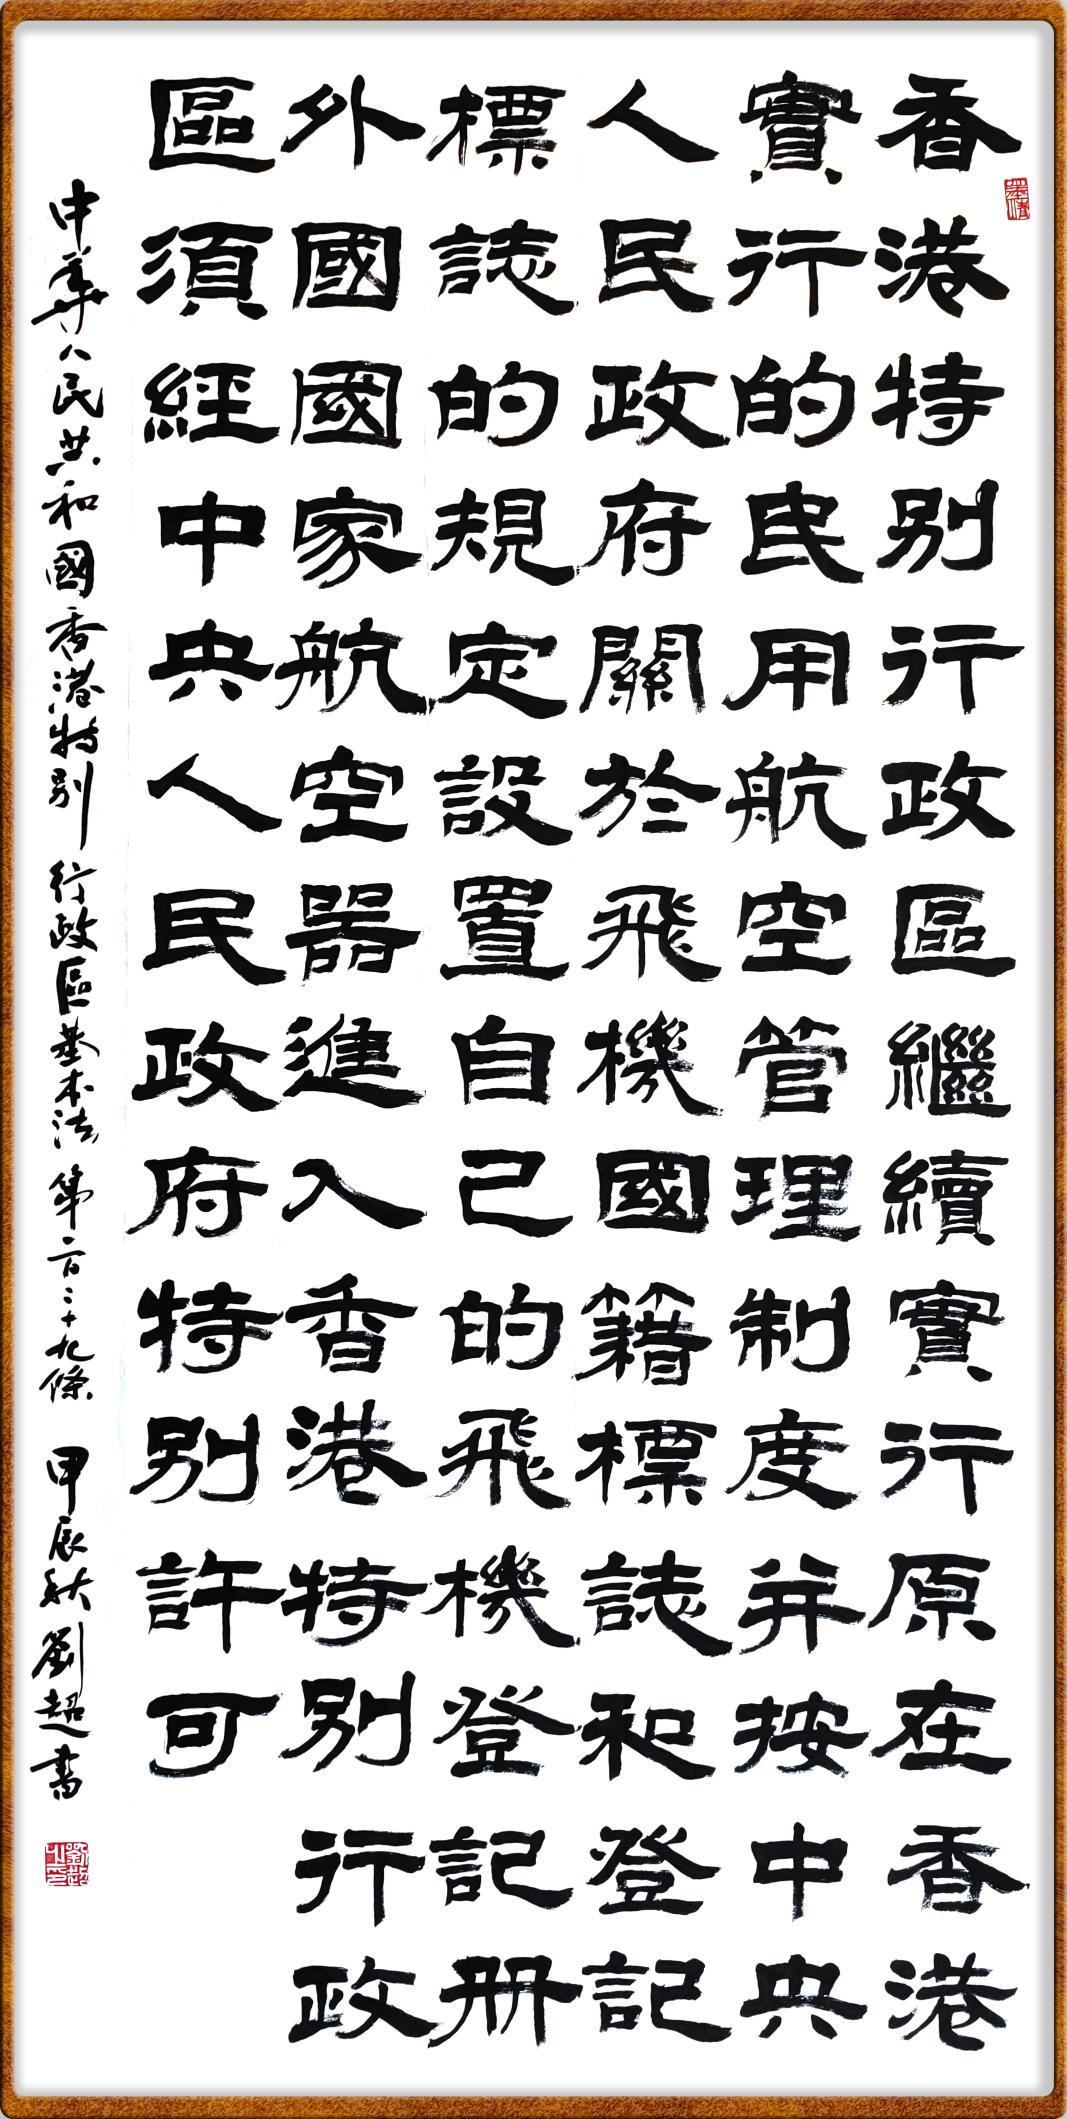 香港特别行政區繼續實行原在香港
實行的民用航空管理制度并按中央
人民政府關於飛機國籍標誌和登記
標誌的規定設置自己的飛機登記册
外國國家航空器進入香港特别行政
區須經中央人民政府特别許可
中華人民共和國香港特别行政區基本法第一百二十九條 甲辰秋劉超書
劉超之印